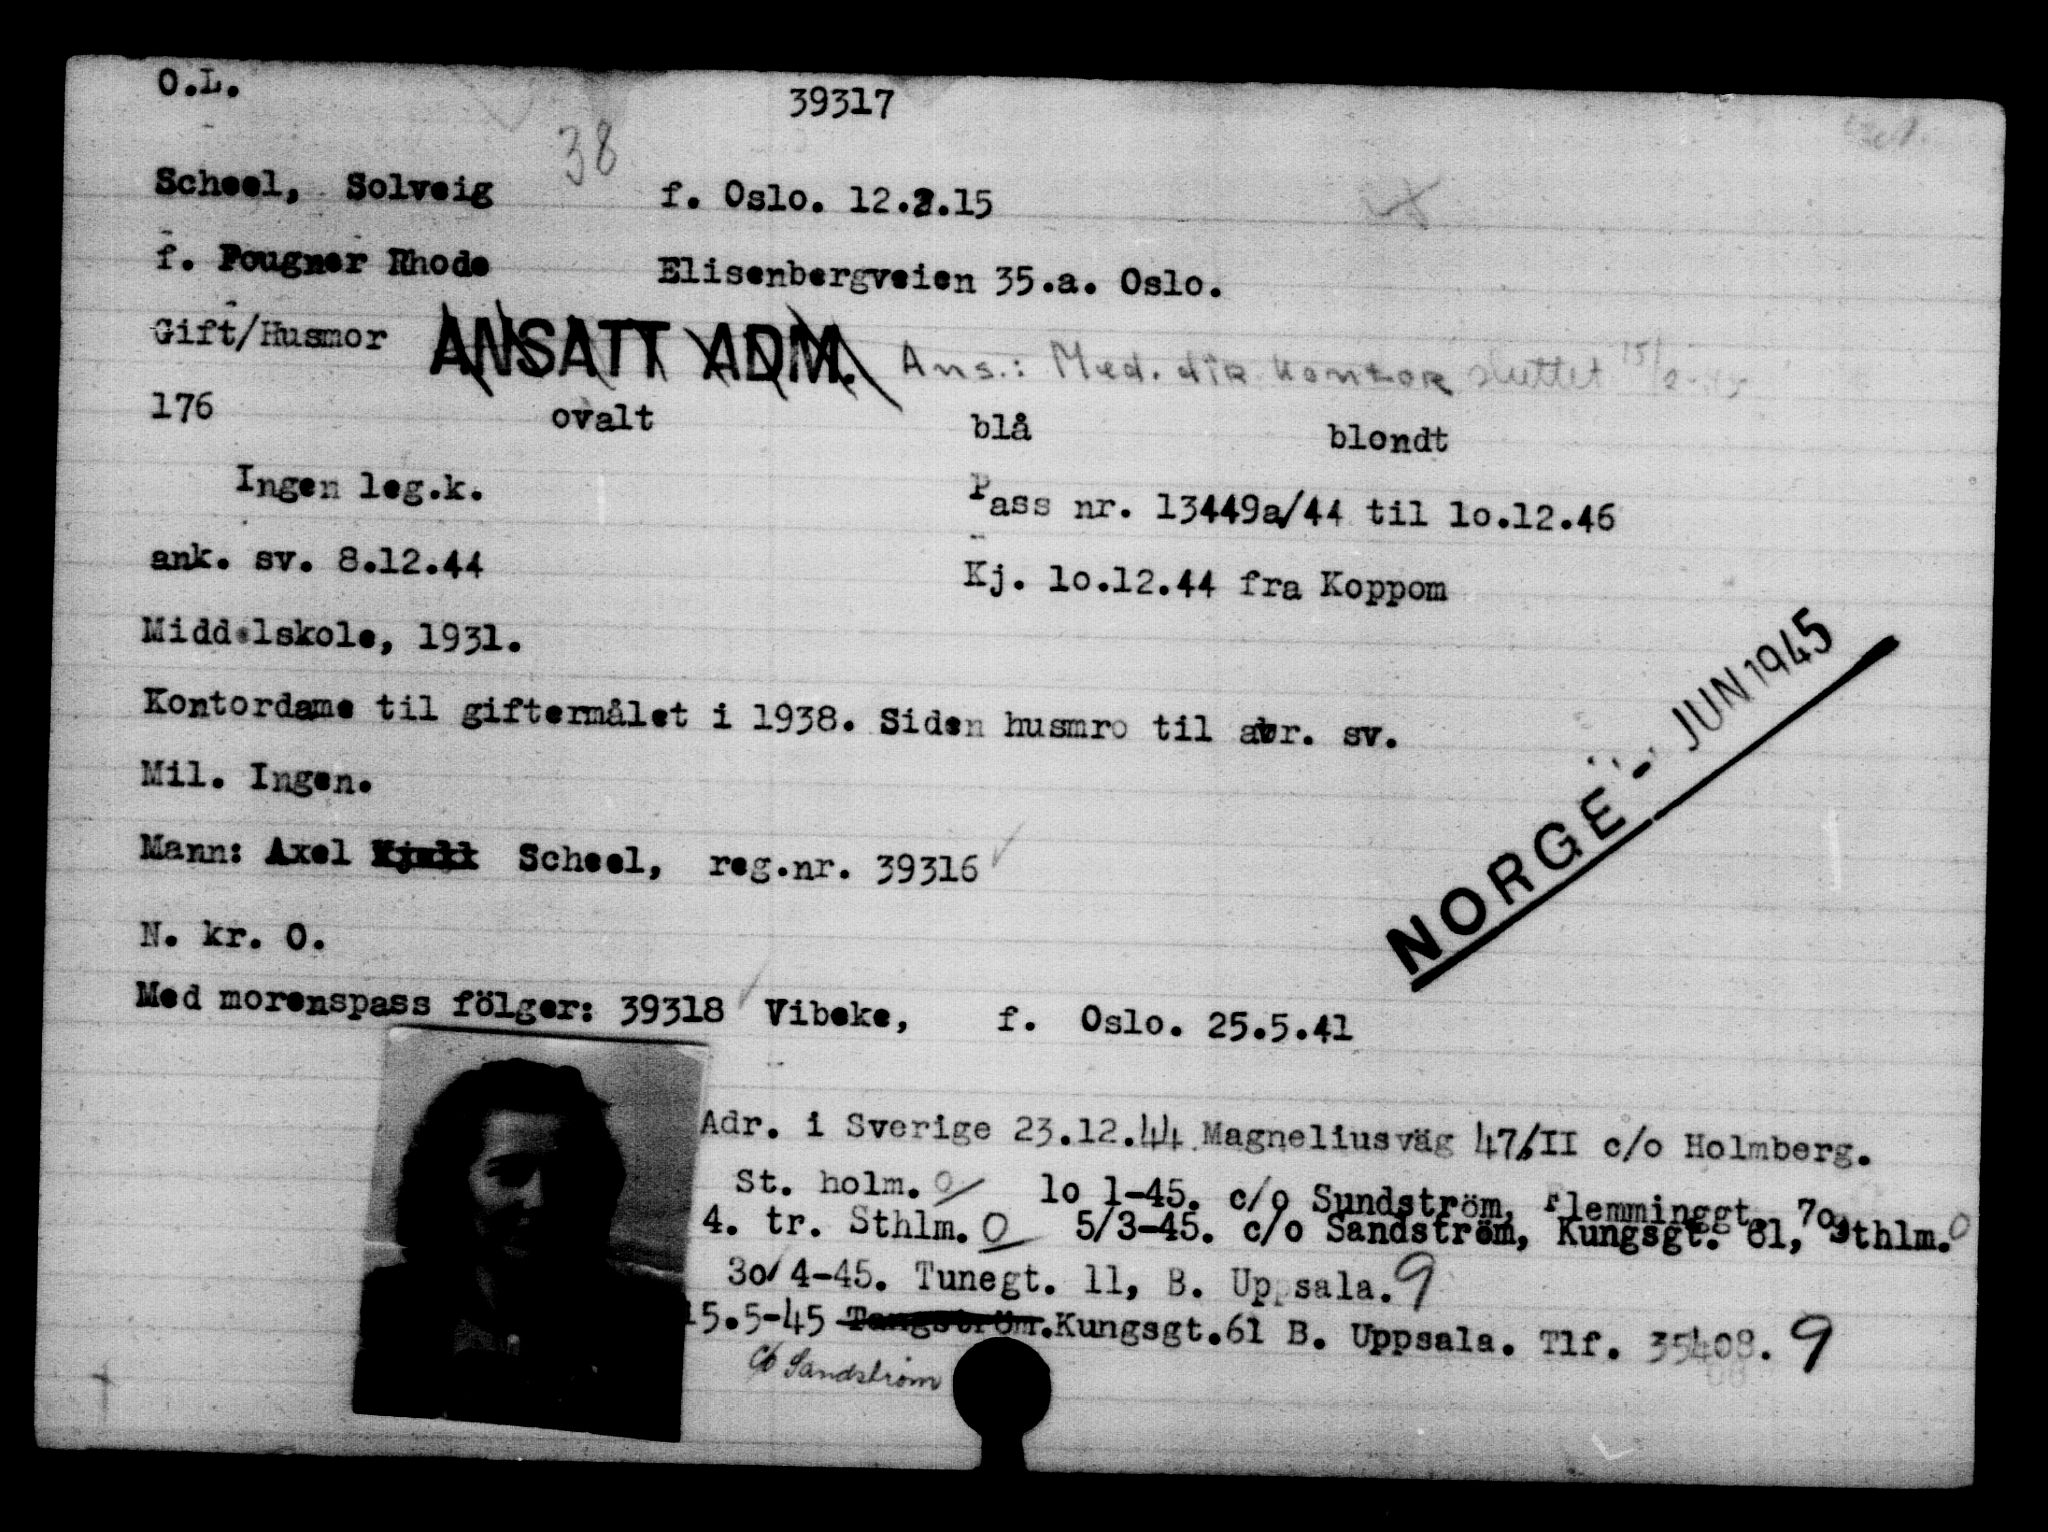 O.L.
39317
38
Scheel, Solveig f. Oslo. 12.2.15
f. Fougner Rhode Elisenbergveien 35.a. Oslo.
Gift/Husmor ANSATT ADM. Ans.: Med. dir. kontor sluttet 15/2-45
176 ovalt blå blondt
Ingen leg.k. Pass nr. 13449a/44 til 1o.12.46
ank. sv. 8.12.44 Kj. 1o.12.44 fra Koppom
Middelskole, 1931.
Kontordame til giftermålet i 1938. Siden husmro til avr. sv.
Mil. Ingen.
Mann: Axel Kjell Scheel, reg.nr. 39316
NORGE - JUN 1945
N. kr. O.
Med morenspass fölger: 39318 Vibeke, f. Oslo. 25.5.41
Adr. i Sverige 23.12.44 Magneliusväg 47./II c/o Holmberg.
St. holm. O 1o 1-45. c/o Sundström, Flemminggt. 7o,
4. tr. Sthlm. O 5/3-45. c/o Sandström, Kungsgt. 61, Sthlm. O
3o/4-45. Tunegt. 11, B. Uppsala. 9
15.5-45 Tangström. Kungsgt.61 B. Uppsala. Tlf. 35408. 9
c/o Sandstrøm